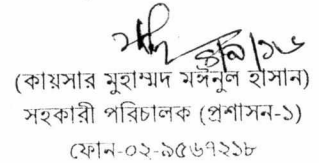 (কায়সার মুহাম্মদ মঈনুল হাসান)
সহকারী পরিচালক (প্রশাসন-১)
ফোন-০২-৯৫৬৭২১৮